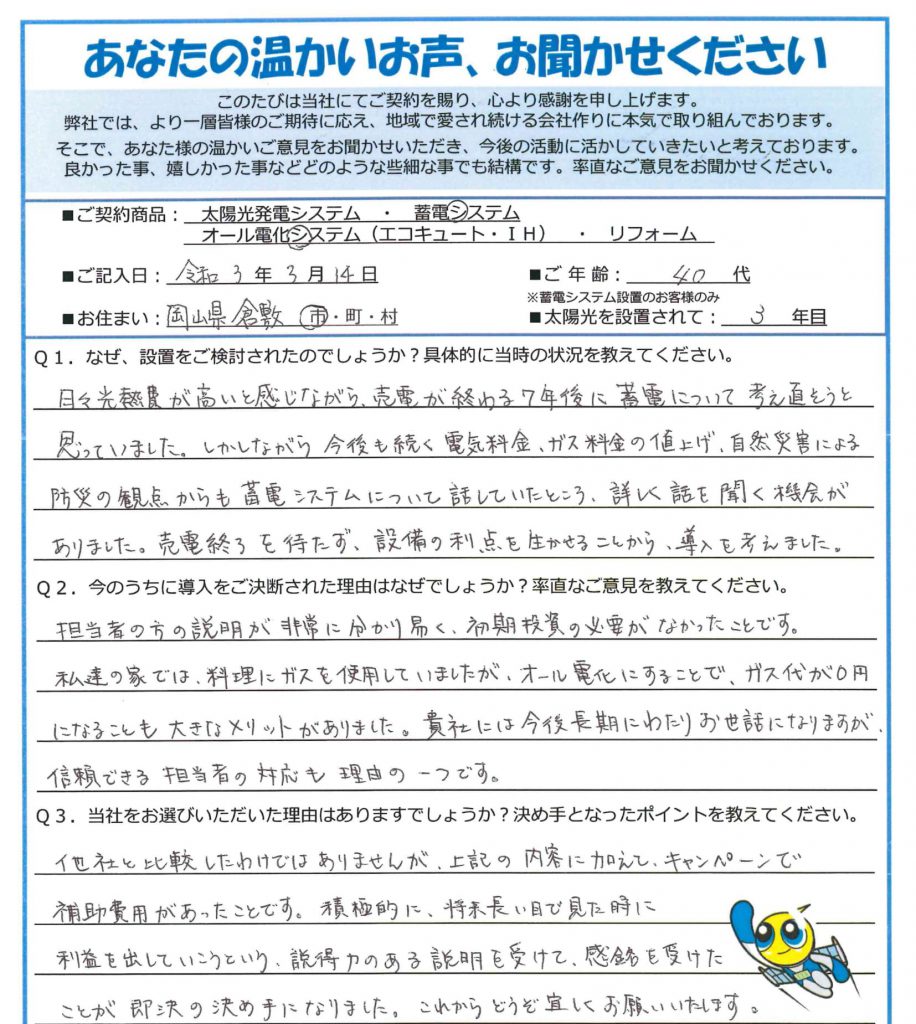 あなたの温かいお声、お聞かせください
このたびは当社にてご契約を賜り、心より感謝を申し上げます。
弊社では、より一層皆様のご期待に応え、地域で愛され続ける会社作りに本気で取り組んでおります。
そこで、あなた様の温かいご意見をお聞かせいただき、今後の活動に活かしていきたいと考えております。
良かった事、嬉しかった事などどのような些細な事でも結構です。率直なご意見をお聞かせください。
■ご契約商品： 太陽光発電システム ・ 蓄電システム
オール電化システム（エコキュート・ＩＨ） ・ リフォーム
■ご記入日： 令和 3 年 3 月 14 日 ■ご 年 齢： 40 代
※蓄電システム設置のお客様のみ
■お住まい： 岡山県 倉敷 市・町・村 ■太陽光を設置されて： 3 年目
Ｑ１．なぜ、設置をご検討されたのでしょうか？具体的に当時の状況を教えてください。
日々光熱費が高いと感じながら、売電が終わる7年後に蓄電について考え直そうと
思っていました。しかしながら今後も続く電気料金、ガス料金の値上げ、自然災害による
防災の観点からも蓄電システムについて話していたところ、詳しく話を聞く機会が
ありました。売電終了を待たず、設備の利点を生かせることから、導入を考えました。
Ｑ２．今のうちに導入をご決断された理由はなぜでしょうか？率直なご意見を教えてください。
担当者の方の説明が非常に分かり易く、初期投資の必要がなかったことです。
私達の家では、料理にガスを使用していましたが、オール電化にすることで、ガス代が0円
になることも大きなメリットがありました。貴社には今後長期にわたりお世話になりますが、
信頼できる担当者の対応も理由の一つです。
Ｑ３．当社をお選びいただいた理由はありますでしょうか？決め手となったポイントを教えてください。
他社と比較したわけではありませんが、上記の内容に加えて、キャンペーンで
補助費用があったことです。積極的に、将来長い目で見た時に
利益を出していこうという、説得力のある説明を受けて、感銘を受けた
ことが即決の決め手になりました。これからどうぞ宜しくお願いいたします。